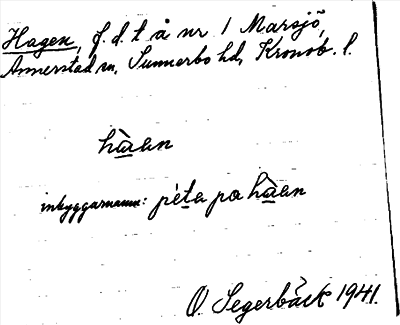 Hagen, f. d. t. å nr 1 Marsjö,
Annerstad sn, Sunnerbo hd, Kronob. l.
hàan
inbyggarnamn: péta pa hàan
O. Segerbäck 1941.